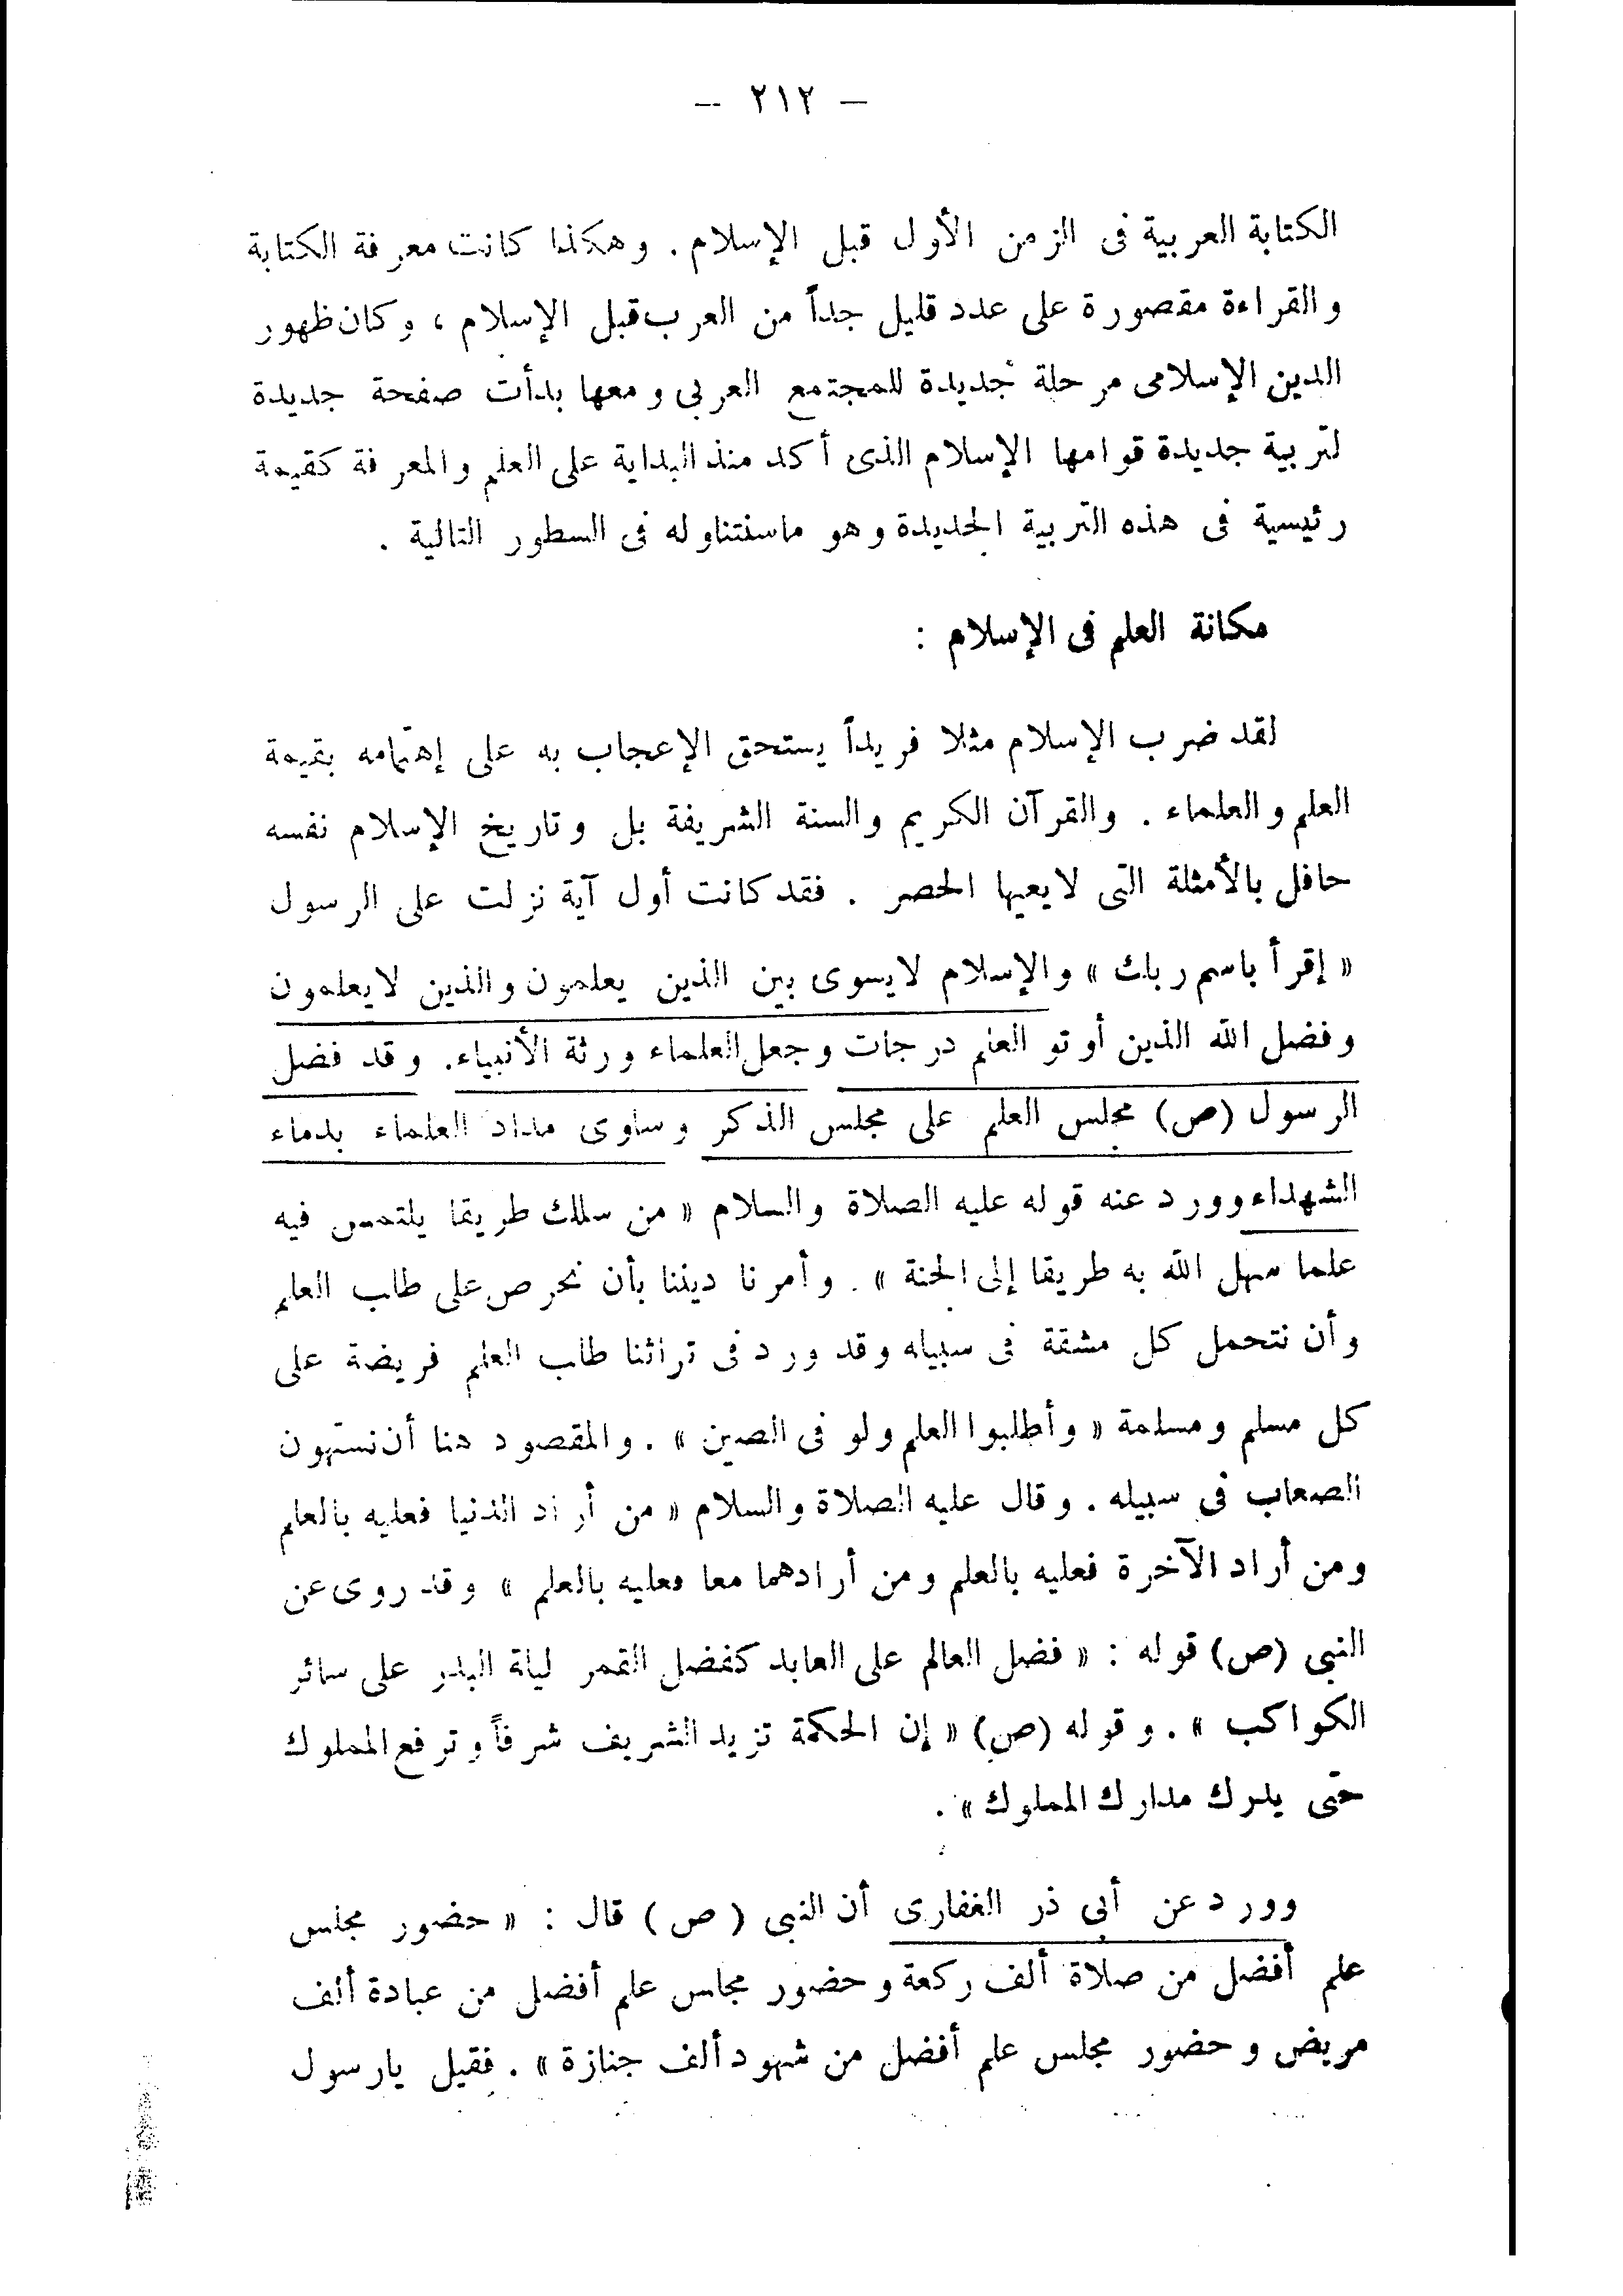 — ٢١٢ —
الكتابة العربية فى الزمن الأول قبل الإسلام . وهكذا كانت معرفة الكتابة
والقراءة مقصورة على عدد قليل جداً من العرب قبل الإسلام ، وكان ظهور
الدين الإسلامى مرحلة جديدة للمجتمع العربى ومعها بدأت صفحة جديدة
لتربية جديدة قوامها الإسلام الذى أكد منذ البداية على العلم والمعرفة كقيمة
رئيسية فى هذه التربية الجديدة وهو ماسنتناوله فى السطور التالية .
مكانة العلم فى الإسلام :
لقد ضرب الإسلام مثلا فريداً يستحق الإعجاب به على إهتمامه بقيمة
العلم والعلماء . والقرآن الكريم والسنة الشريفة بل وتاريخ الإسلام نفسه
حافل بالأمثلة التى لايعيها الحصر . فقد كانت أول آية نزلت على الرسول
« إقرأ باسم ربك » والإسلام لايسوى بين الذين يعلمون والذين لايعلمون
وفضل الله الذين أوتو العلم درجات وجعل العلماء ورثة الأنبياء . وقد فضل
الرسول (ص) مجلس العلم على مجلس الذكر وساوى مداد العلماء بدماء
الشهداء وورد عنه قوله عليه الصلاة والسلام « من سلك طريقا يلتمس فيه
علما سهل الله به طريقا إلى الجنة » . وأمرنا ديننا بأن نحرص على طلب العلم
وأن نتحمل كل مشقة فى سبيله وقد ورد فى تراثنا طلب العلم فريضة على
كل مسلم ومسلمة « وأطلبوا العلم ولو فى الصين » . والمقصود هنا أن نستهون
الصعاب فى سبيله . وقال عليه الصلاة والسلام « من أراد الدنيا فعليه بالعلم
ومن أراد الآخرة فعليه بالعلم ومن أرادهما معا فعليه بالعلم » وقد روى عن
النبى (ص) قوله : « فضل العالم على العابد كفضل القمر ليلة البدر على سائر
الكواكب » . وقوله (ص) « إن الحكمة تزيد الشريف شرفاً وترفع المملوك
حتى يدرك مدارك المملوك » .
وورد عن أبى ذر الغفارى أن النبى ( ص ) قال : « حضور مجلس
علم أفضل من صلاة ألف ركعة وحضور مجلس علم أفضل من عيادة ألف
مريض وحضور مجلس علم أفضل من شهود ألف جنازة » . فقيل يارسول